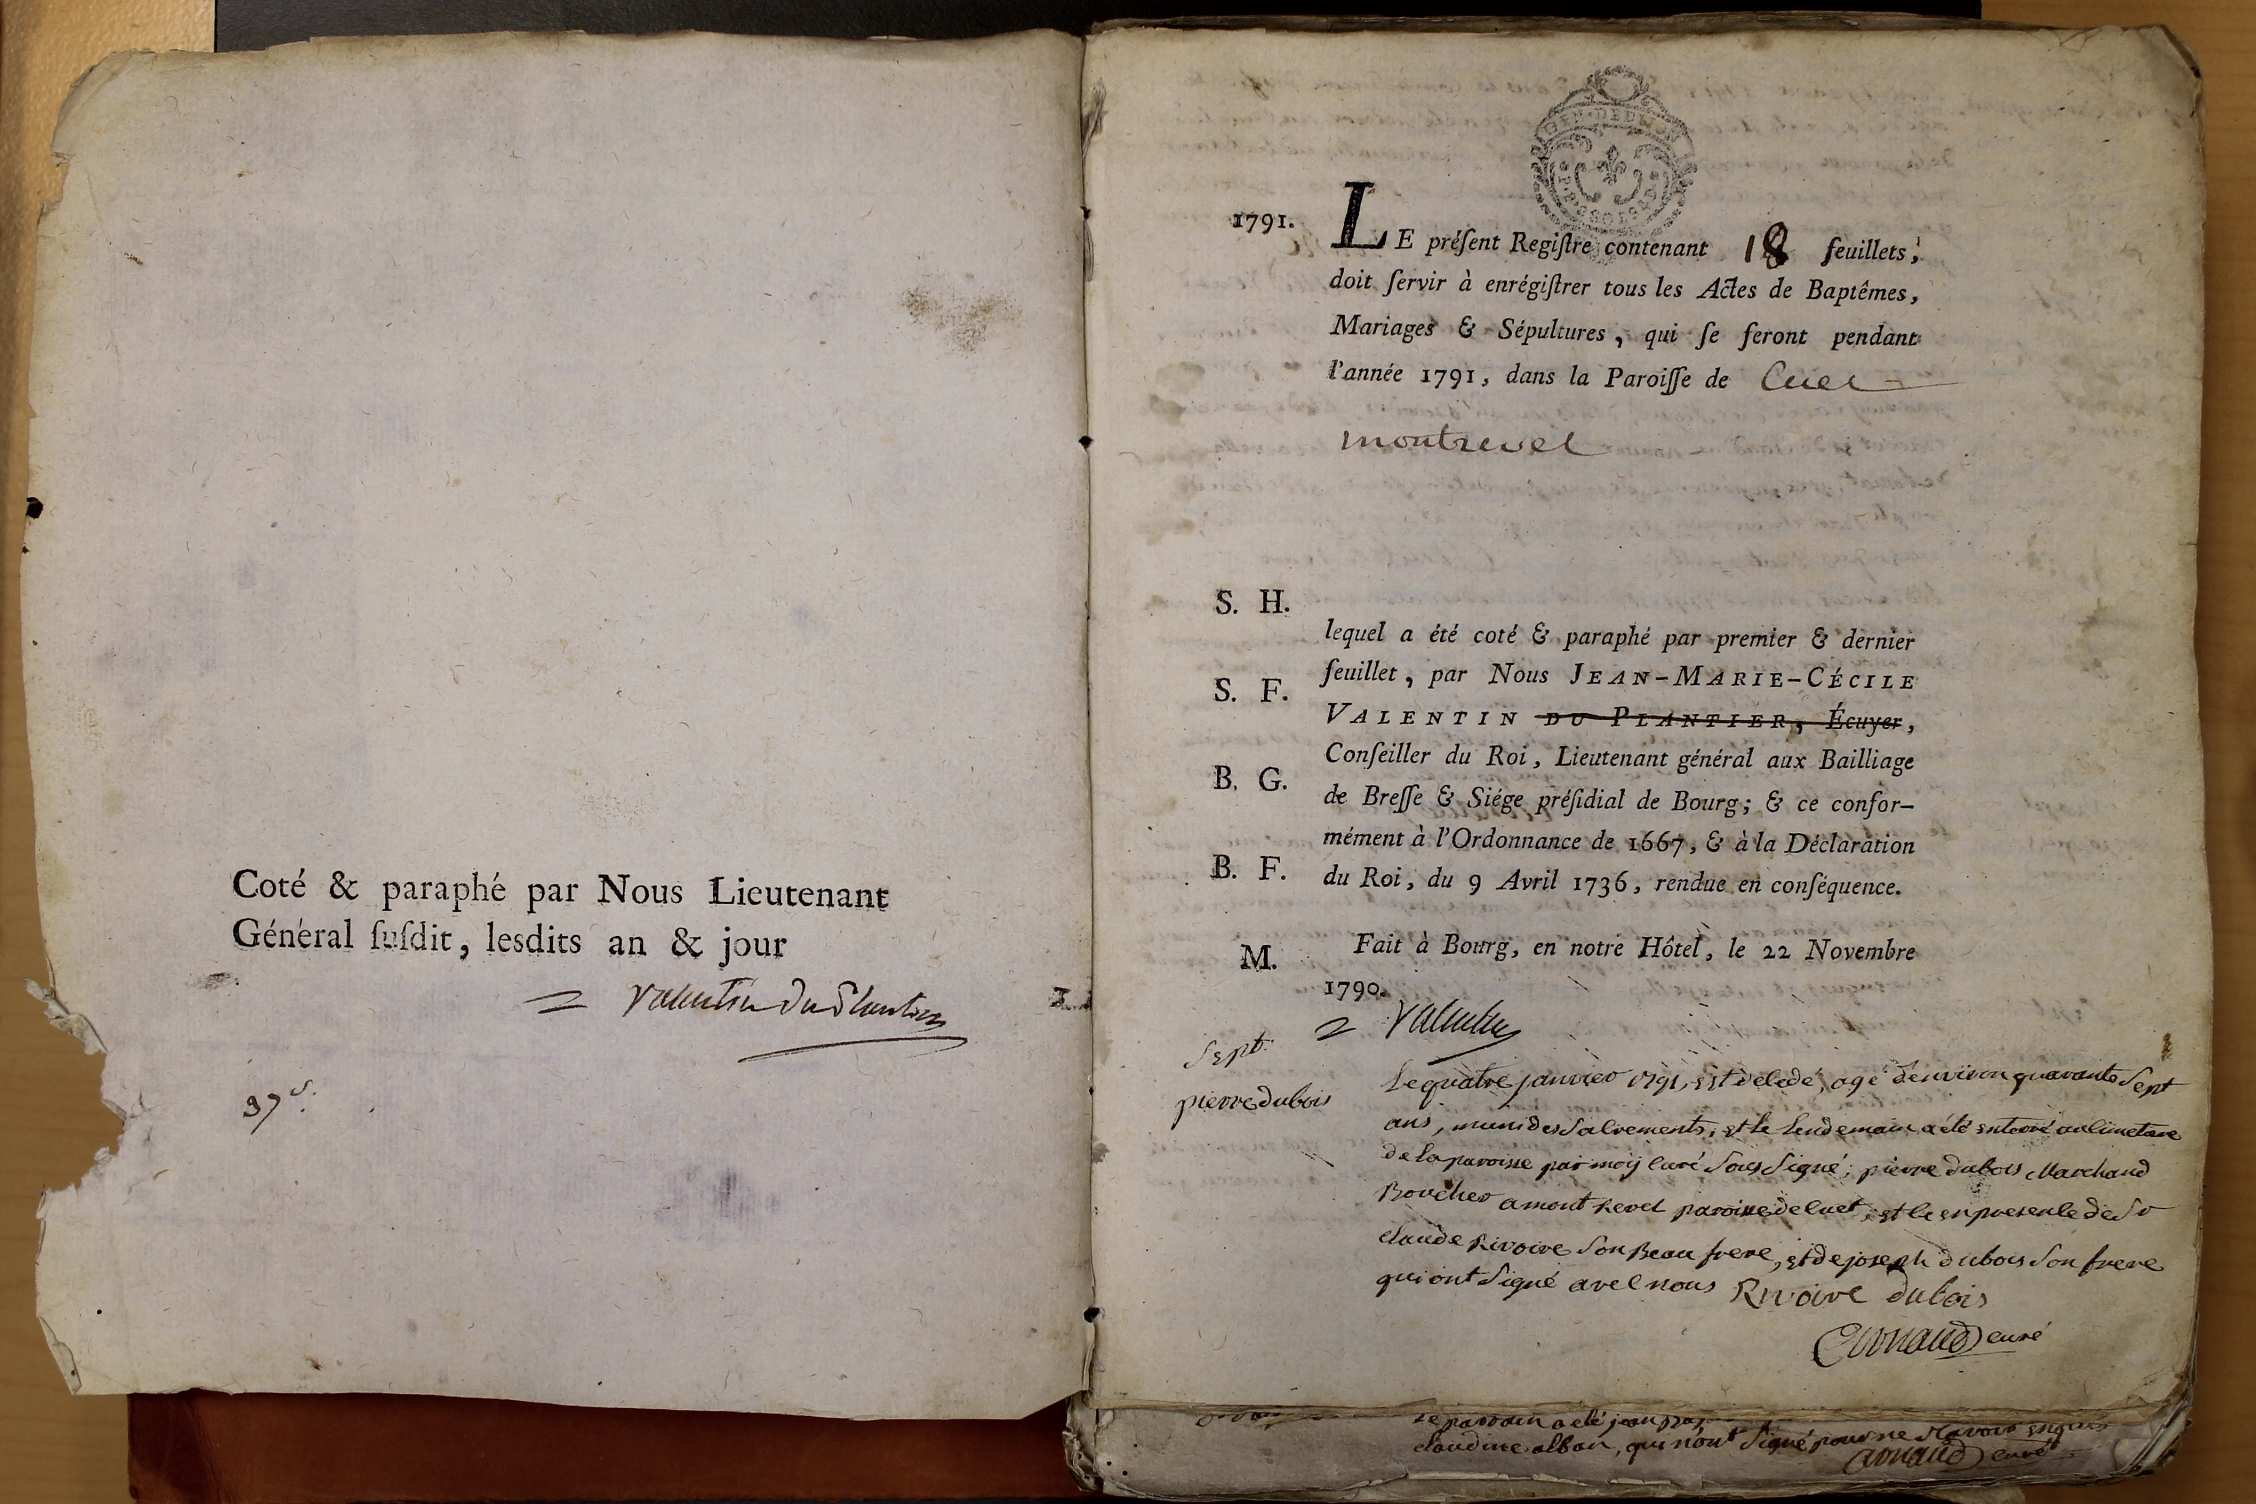 Coté & paraphé par Nous Lieutenant
Général ſuſdit, lesdits an & jour
Valentin du Plantier
37 s.
1791.
LE préſent Regiſtre contenant 18 feuillets,
doit ſervir à enrégiſtrer tous les Actes de Baptêmes,
Mariages & Sépultures, qui ſe feront pendant
l'année 1791, dans la Paroiſſe de Cuet
montrevel
S. H.
S. F.
B. G.
B. F.
M.
lequel a été coté & paraphé par premier & dernier
feuillet, par Nous JEAN-MARIE-CÉCILE
VALENTIN DU PLANTIER, Écuyer,
Conſeiller du Roi, Lieutenant général aux Bailliage
de Breſſe & Siége préſidial de Bourg; & ce confor-
mément à l'Ordonnance de 1667, & à la Déclaration
du Roi, du 9 Avril 1736, rendue en conſéquence.
Fait à Bourg, en notre Hôtel, le 22 Novembre
1790.
Valentin
Sept.
pierre dubois
Le quatre janvier 1791, est décédé, agé d'environ quarante Sept
ans, muni des Sacrements, et le lendemain a été enterré au cimetare
de la paroisse par moy curé Sous Signé, pierre dubois Marchand
Boucher a mont Revel paroisse de cuet, et ce en presence de Sr
claude Rivoire Son Beau frere, et de joseph dubois Son frere
qui ont Signé avec nous Rivoire dubois
curé
le parrain a été jean
claudine alban, qui n'ont Signé pour ne Scavoir enquis
curé